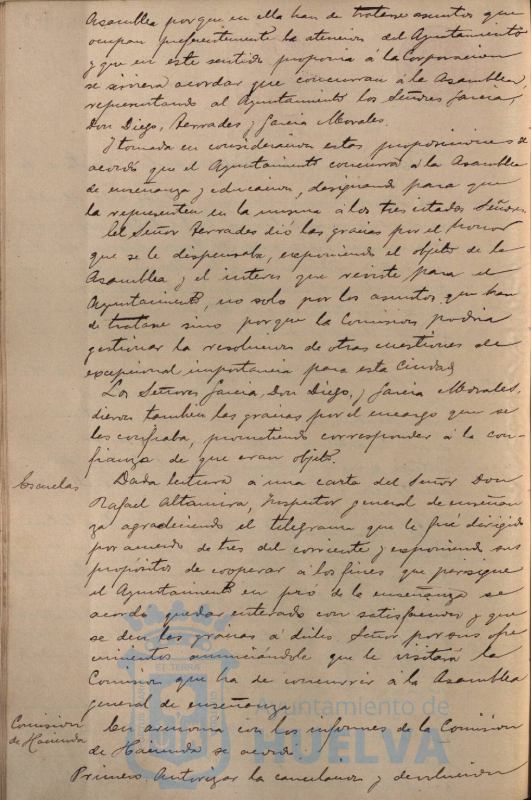 Asamblea porque en ella han de tratarse asuntos que
ocupan preferentemente la atencion del Ayuntamiento
y que en este sentido proponia á la Corporacion
se sirviera acordar que concurran á la Asamblea,
representando al Ayuntamiento los Señores Garcia,
Don Diego, Terrades y Garcia Morales.
Y tomada en consideracion estas proposiciones se
acordó que el Ayuntamiento concurra á la Asamblea
de enseñanza y educacion, designando para que
la representen en la misma á los tres citados Señores
El Señor Terrades dió las gracias por el honor
que se le dispensaba, exponiendo el objeto de la
Asamblea y el interes que reviste para el
Ayuntamiento, no solo por los asuntos que han
de tratarse sino porque la Comision podria
gestionar la resolucion de otras cuestiones de
excepcional importancia para esta Ciudad
Los Señores Garcia, Don Diego, y Garcia Morales,
dieron tambien las gracias por el encargo que se
les confiaba, prometiendo corresponder á la con-
fianza de que eran objeto.
Escuelas
Dada lectura á una carta del Señor Don
Rafael Altamira, Inspector general de enseñan
za agradeciendo el telegrama que le fué dirigido
por acuerdo de tres del corriente y exponiendo sus
propósitos de cooperar á los fines que persigue
el Ayuntamiento en pró de la enseñanza se
acordó quedar enterado con satisfaccion y que
se den las gracias á dicho Señor por sus ofre
cimientos anunciándole que le visitará la
Comision que ha de concurrir á la Asamblea
general de enseñanza.
Comision
de Hacienda
En armonia con los informes de la Comision
de Hacienda se acordó:
Primero. Autorizar la cancelacion y devolucion
Ayuntamiento de
HUELVA